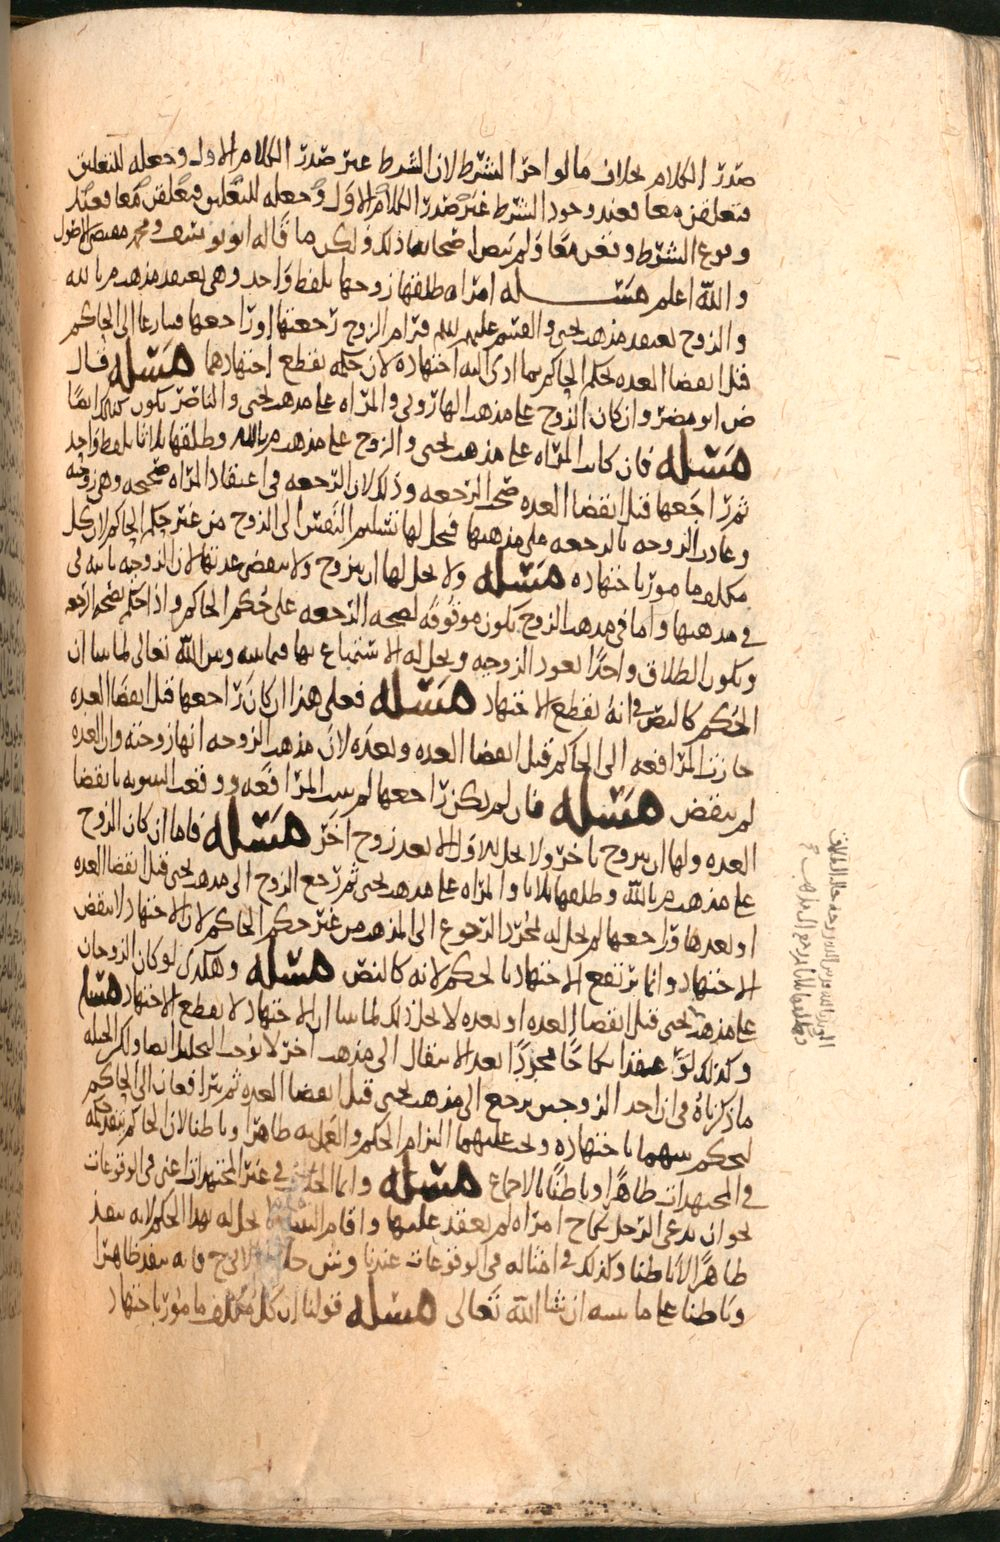 صدر الكلام بخلاف ما لو اخر الشرط لان الشرط غير صدر الكلام الاول وجعله للتعليق
فتعلقن معا فعند وجود الشرط غير صدر الكلام الاول وجعله للتعليق فتعلقن معا فعند
وقوع الشرط وقعن معا ولم ينص اصحابنا ذلك ولكن ما قاله ابو يوسف ومحمد مقتضى الاصول
والله اعلم مسئله امراه طلقها زوجها بلفظ واحد وهي تعتقد مذهب م بالله
والزوج يعتقد مذهب يحيى والقسم عليهم السلم فرام الزوج رجعتها او راجعها فترافعا الى الحاكم
قبل انقضا العده لحكم الحاكم بما ادى اليه اجتهاده لان حكمه يقطع اجتهادهما مسئله قال
ض ابو مضر وان كان الزوج على مذهب الهاروني والمراه على مذهب يحيى والناصر يكون كذلك ايضا
مسئله فان كانت المراه على مذهب يحيى والزوج على مذهب م بالله وطلقها ثلاثا بلفظ واحد
ثم راجعها قبل انقضا العده صحت الرجعه وذلك لان الرجعه في اعتقاد المراه صحيحه وهي زوجته
وعادت الزوجه بالرجعه على مذهبها فيحل لها تسليم النفس الى الزوج من غير حكم الحاكم لان كل
مكلف مامور باجتهاده مسئله ولا يحل لها ان تتزوج ولا تنقضي عدتها لان الزوجيه باقيه في
في مذهبها واما في مذهب الزوج تكون موقوفه لصحه الرجعه على حكم الحاكم واذا حكم بصحه الرجعه
ويكون الطلاق واحدا تعود الزوجيه ويحل له الاستمتاع بها فيما بينه وبين الله تعالى لما بينا ان
الحكم كالنص في انه يقطع الاجتهاد مسئله فعلى هذا ان كان راجعها قبل انقضا العده
جازت المرافعه الى الحاكم قبل انقضا العده وبعده لان مذهب الزوجه انها زوجته وان العده
لم تنقض مسئله فان لم يكن راجعها لم تثبت المرافعه ووقعت البينونه بانقضا
العده ولها ان تتزوج باخر ولا يحل للاول الا بعد زوج اخر مسئله فاما ان كان الزوج
على مذهب م بالله وطلقها ثلاثا والمراه على مذهب يحيى ثم رجع الزوج الى مذهب يحيى قبل انقضا العده
او بعدها وراجعها لم يحل له لمجرد الرجوع الى المذهب من غير حكم الحاكم لان الاجتهاد لا ينقض
الاجتهاد وانما يرتفع الاجتهاد بالحكم لانه كالنص مسئله وهكذى لو كان الزوجان
على مذهب يحيى قبل انقضا العده او بعده لا يحل ذلك لما بينا ان الاجتهاد لا يقطع الاجتهاد مسئله
وكذلك لو عقدا نكاحا مجردا بعد الانتقال الى مذهب اخر لا يوجب التحليل ايضا ولكن الحيله
ما ذكرناه في ان احد الزوجين يرجع الى مذهب يحيى قبل انقضا العده ثم يترافعان الى الحاكم
ليحكم بينهما باجتهاده ويجب عليهما التزام الحكم والعمل به ظاهرا وباطنا لان الحاكم ينفذ حكمه
في المجتهدات ظاهرا وباطنا بالاجماع مسئله وانما الخلاف في غير المجتهدات اعني في الوقوعات
نحو ان يدعي الرجل نكاح امراه لم يعقد عليها واقام البينه يحل له بهذا الحكم لانه ينفذ
ظاهرا لا باطنا وكذلك في امثاله في الوقوعات عندنا وش ح فانه ينفذ ظاهرا
وباطنا على ما نبينه ان شا الله تعالى مسئله قولنا ان كل مكلف مامور باجتهاد